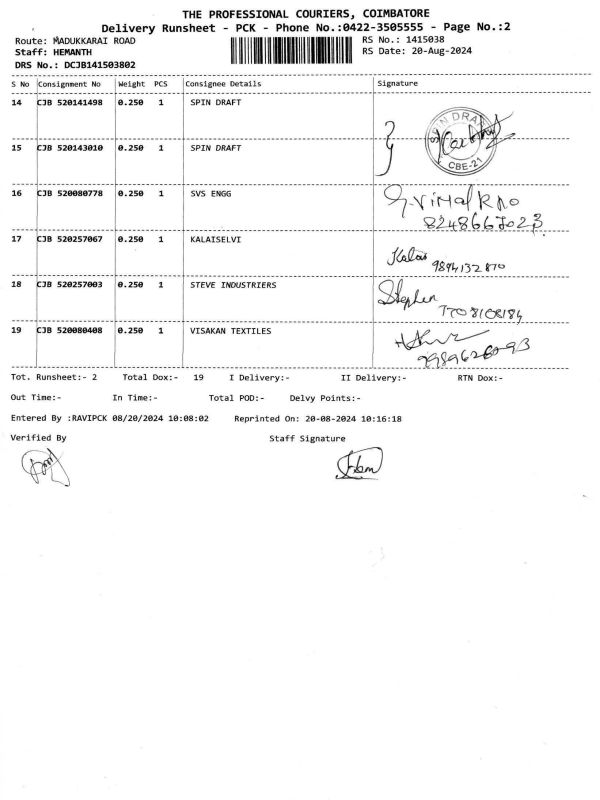 THE PROFESSIONAL COURIERS, COIMBATORE
Delivery Runsheet - PCK - Phone No.:0422-3505555 - Page No.:2
Route: MADUKKARAI ROAD
RS No.: 1415038
Staff: HEMANTH
RS Date: 20-Aug-2024
DRS No.: DCJB141503802
S No Consignment No Weight PCS Consignee Details Signature
14 CJB 520141498 0.250 1 SPIN DRAFT
SPIN DRAFT
CBE-21
15 CJB 520143010 0.250 1 SPIN DRAFT
16 CJB 520080778 0.250 1 SVS ENGG
17 CJB 520257067 0.250 1 KALAISELVI
Kalai
9894132870
18 CJB 520257003 0.250 1 STEVE INDUSTRIERS
Stephen
7708108184
19 CJB 520080408 0.250 1 VISAKAN TEXTILES
Tot. Runsheet:- 2 Total Dox:- 19 I Delivery:- II Delivery:- RTN Dox:-
Out Time:- In Time:- Total POD:- Delvy Points:-
Entered By :RAVIPCK 08/20/2024 10:08:02 Reprinted On: 20-08-2024 10:16:18
Verified By Staff Signature